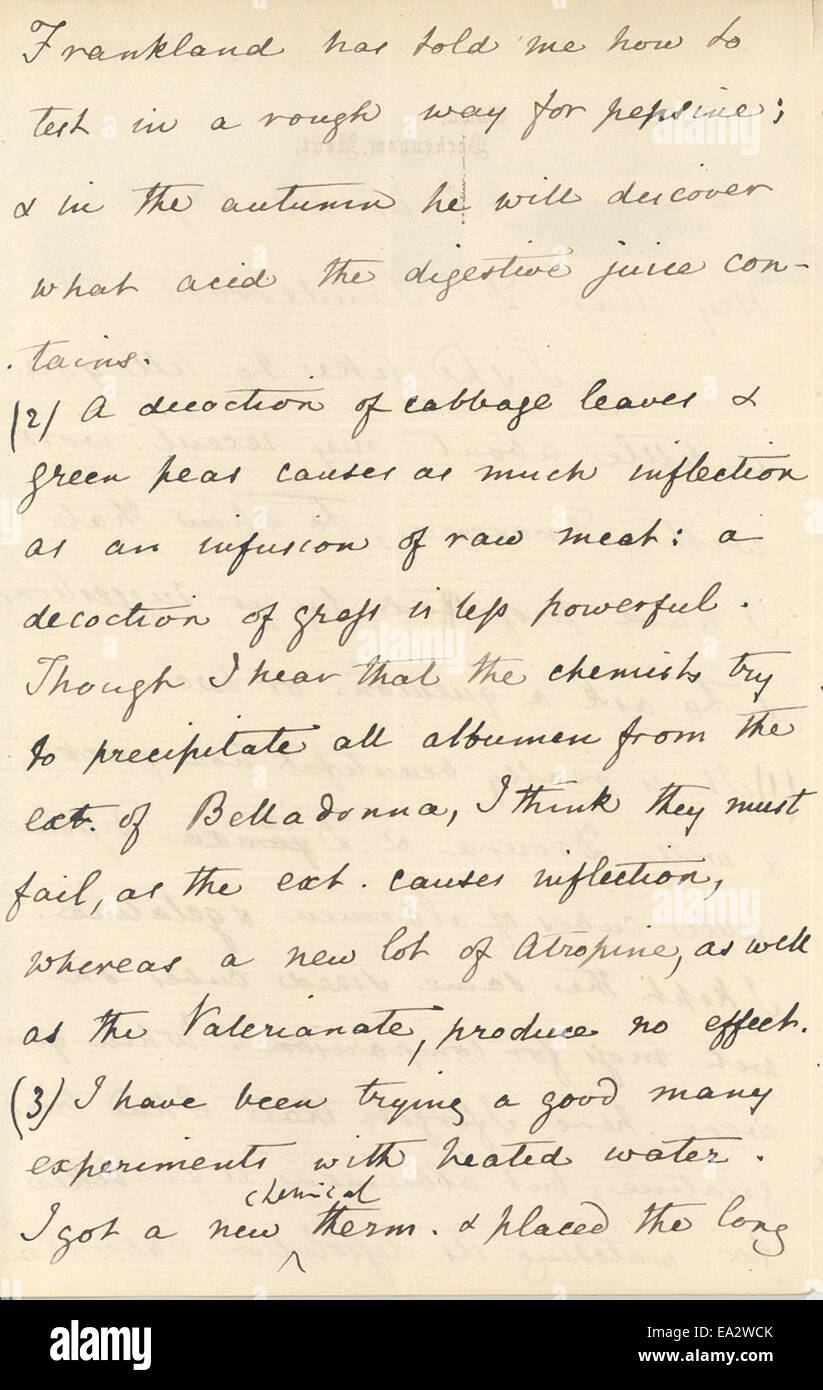 Frankland has told me how to
test in a rough way for pepsine;
& in the autumn he will discover
what acid the digestive juice con-
tains.
(2) A decoction of cabbage leaves &
green peas causes as much inflection
as an infusion of raw meat: a
decoction of grass is less powerful.
Though I hear that the chemists try
to precipitate all albumen from the
ext. of Belladonna, I think they must
fail, as the ext. causes inflection,
whereas a new lot of Atropine, as well
as the Valerianate, produce no effect.
(3) I have been trying a good many
experiments with heated water.
I got a new chemical therm. & placed the long
alamy
alamy
alamy
alamy
alamy
Image ID: EA2WCK
www.alamy.com